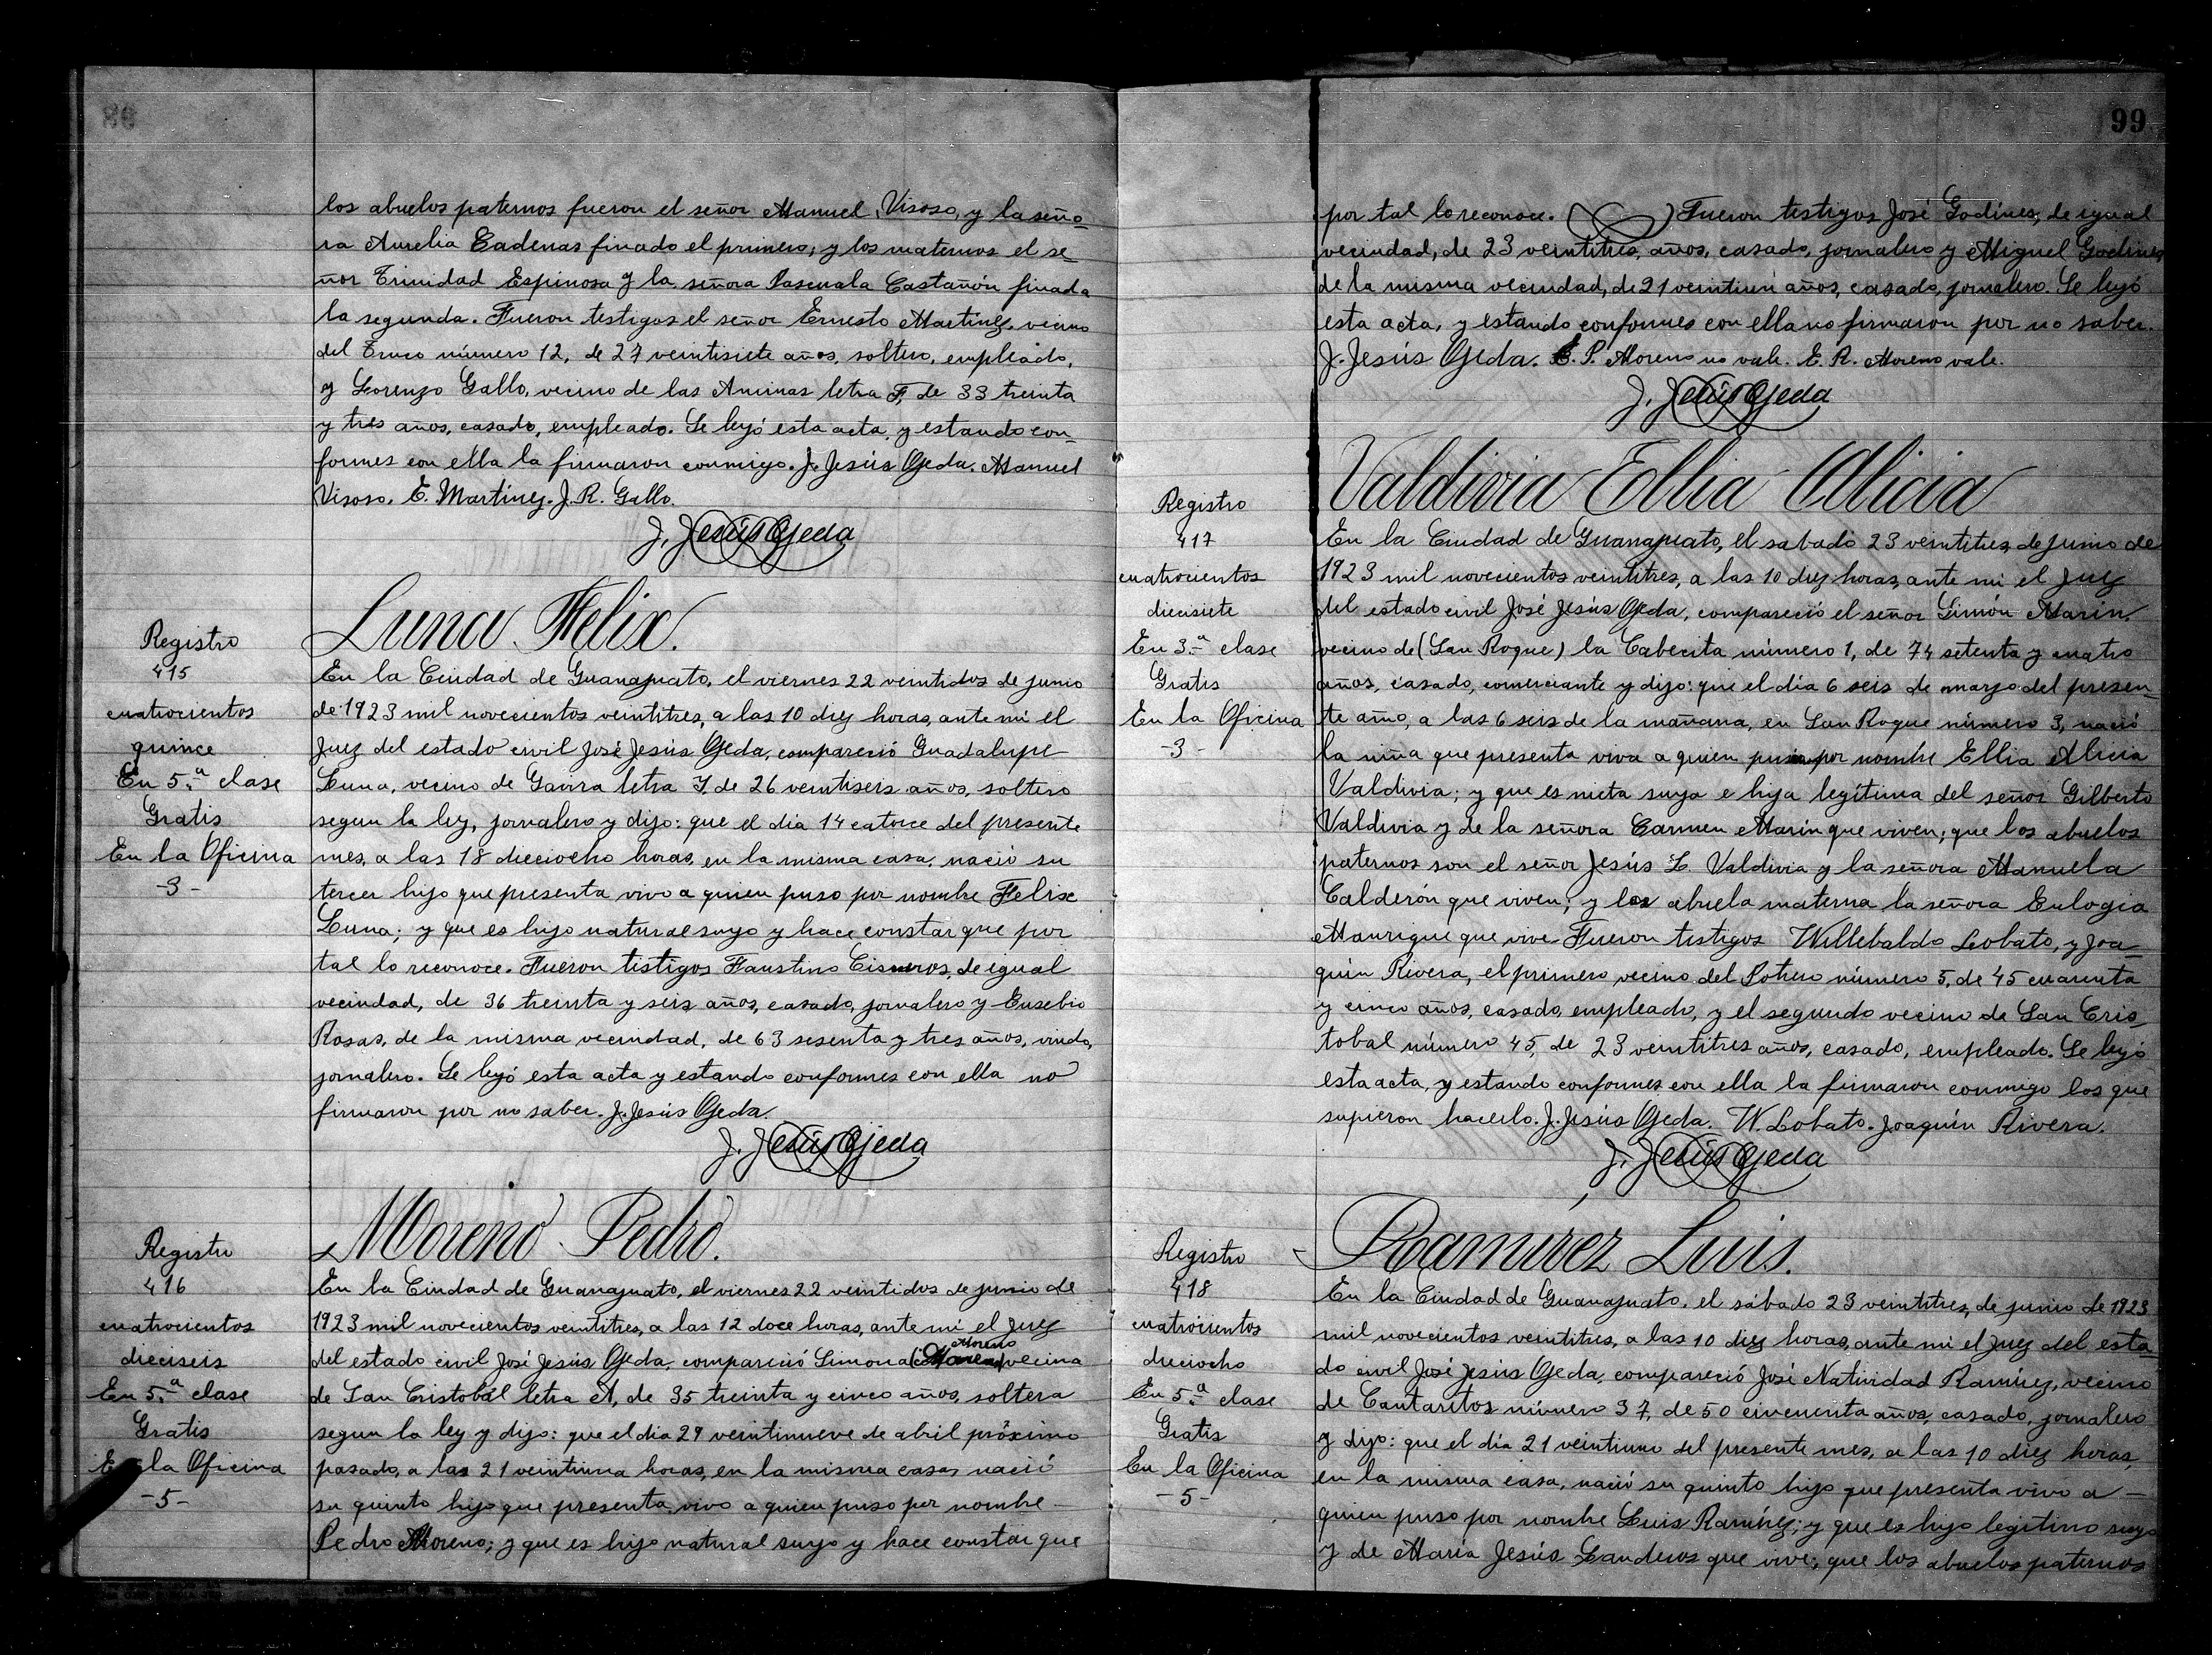 los abuelos paternos fueron el señor Manuel Visoso, y la seño-
ra Aurelia Cadenas finado el primero; y los maternos el se-
ñor Trinidad Espinosa y la señora Pascuala Castañón finada
la segunda. Fueron testigos el señor Ernesto Martínez, vecino
del Truco número 12, de 27 veintisiete años, soltero, empleado,
y Lorenzo Gallo, vecino de las Animas letra F, de 33 treinta
y tres años, casado, empleado. Se leyó esta acta, y estando con-
formes con ella la firmaron conmigo. J. Jesús Ojeda. Manuel
Visoso. E. Martínez. J. R. Gallo.
J. Jesús Ojeda
Luna Felix.
Registro
415
cuatrocientos
quince
En 5.a clase
Gratis
En la Oficina
-3-
En la Ciudad de Guanajuato, el viernes 22 veintidos de junio
de 1923 mil novecientos veintitres, a las 10 diez horas, ante mí el
Juez del estado civil José Jesús Ojeda, compareció Guadalupe
Luna, vecino de Gavira letra Y, de 26 veintiseis años, soltero
segun la ley, jornalero y dijo: que el dia 14 catorce del presente
mes, a las 18 dieciocho horas, en la misma casa, nació su
tercer hijo que presenta vivo a quien puso por nombre Felix
Luna; y que es hijo natural suyo y hace constar que por
tal lo reconoce. Fueron testigos Faustino Cisneros, de igual
vecindad, de 36 treinta y seis años, casado, jornalero y Eusebio
Rosas, de la misma vecindad, de 63 sesenta y tres años, viudo,
jornalero. Se leyó esta acta y estando conformes con ella no
firmaron por no saber. J. Jesús Ojeda.
J. Jesús Ojeda
Moreno Pedro.
Registro
416
cuatrocientos
dieciseis
En 5.a clase
Gratis
En la Oficina
-5-
En la Ciudad de Guanajuato, el viernes 22 veintidos de junio de
1923 mil novecientos veintitres, a las 12 doce horas, ante mí el Juez
Moreno
del estado civil José Jesús Ojeda, compareció Simona vecina
de San Cristobal letra A, de 35 treinta y cinco años, soltera
segun la ley y dijo: que el dia 29 veintinueve de abril próximo
pasado, a las 21 veintiuna horas, en la misma casa, nació
su quinto hijo que presenta vivo a quien puso por nombre
Pedro Moreno; y que es hijo natural suyo y hace constar que
99
por tal lo reconoce. Fueron testigos José Godínes, de igual
vecindad, de 23 veintitres, años, casado, jornalero y Miguel Godines,
de la misma vecindad, de 21 veintiun años, casado, jornalero. Se leyó
esta acta, y estando conformes con ella no firmaron por no saber.
J. Jesús Ojeda. E. P. Moreno no vale. E. R. Moreno vale.
J. Jesús Ojeda
Valdivia Ellia Alicia
Registro
417
cuatrocientos
diecisiete
En 3.a clase
Gratis
En la Oficina
-3-
En la Ciudad de Guanajuato, el sabado 23 veintitres, de junio de
1923 mil novecientos veintitres, a las 10 diez horas, ante mi el Juez
del estado civil José Jesús Ojeda, compareció el señor Simón Marin,
vecino de (San Roque) la Cabecita número 1, de 74 setenta y cuatro
años, casado, comerciante y dijo: que el día 6 seis de marzo del presen-
te año, a las 6 seis de la mañana, en San Roque número 3, nació
la niña que presenta viva a quien puso por nombre Ellia Alicia
Valdivia; y que es nieta suya e hija legítima del señor Gilberto
Valdivia y de la señora Carmen Marin que viven; que los abuelos
paternos son el señor Jesús L. Valdivia y la señora Manuela
Calderón que viven; y la abuela materna la señora Eulogia
Manrique que vive. Fueron testigos Willebaldo Lobato, y Joa-
quin Rivera, el primero vecino del Potrero número 5, de 45 cuarenta
y cinco años, casado, empleado, y el segundo vecino de San Cris-
tobal número 45, de 23 veintitres años, casado, empleado. Se leyó
esta acta, y estando conformes con ella la firmaron conmigo los que
supieron hacerlo. J. Jesús Ojeda. W. Lobato. Joaquín Rivera.
J. Jesús Ojeda
Ramírez Luis.
Registro
418
cuatrocientos
dieciocho
En 5.a clase
Gratis
En la Oficina
-5-
En la Ciudad de Guanajuato, el sábado 23 veintitres, de junio de 1923
mil novecientos veintitres, a las 10 diez horas, ante mi el Juez del esta-
do civil José Jesús Ojeda, compareció José Natividad Ramírez, vecino
de Cantaritos número 37, de 50 cincuenta años, casado, jornalero
y dijo: que el día 21 veintiuno del presente mes, a las 10 diez horas,
en la misma casa, nació su quinto hijo que presenta vivo a -
quien puso por nombre Luis Ramírez; y que es hijo legitimo suyo
y de María Jesús Landeros que vive; que los abuelos paternos